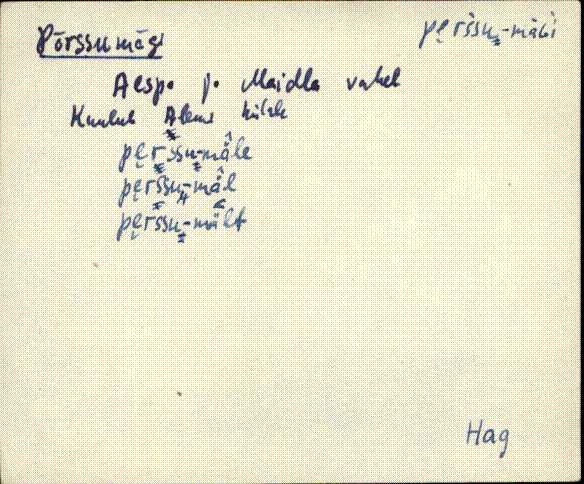 Põrssumägi
pe̮rssu-mäGi
Aespa ja Maidla vahel
Kuulub külale
pe̮rssu-mäle
pe̮rssu-mäl
pe̮rssu-mält
Hag